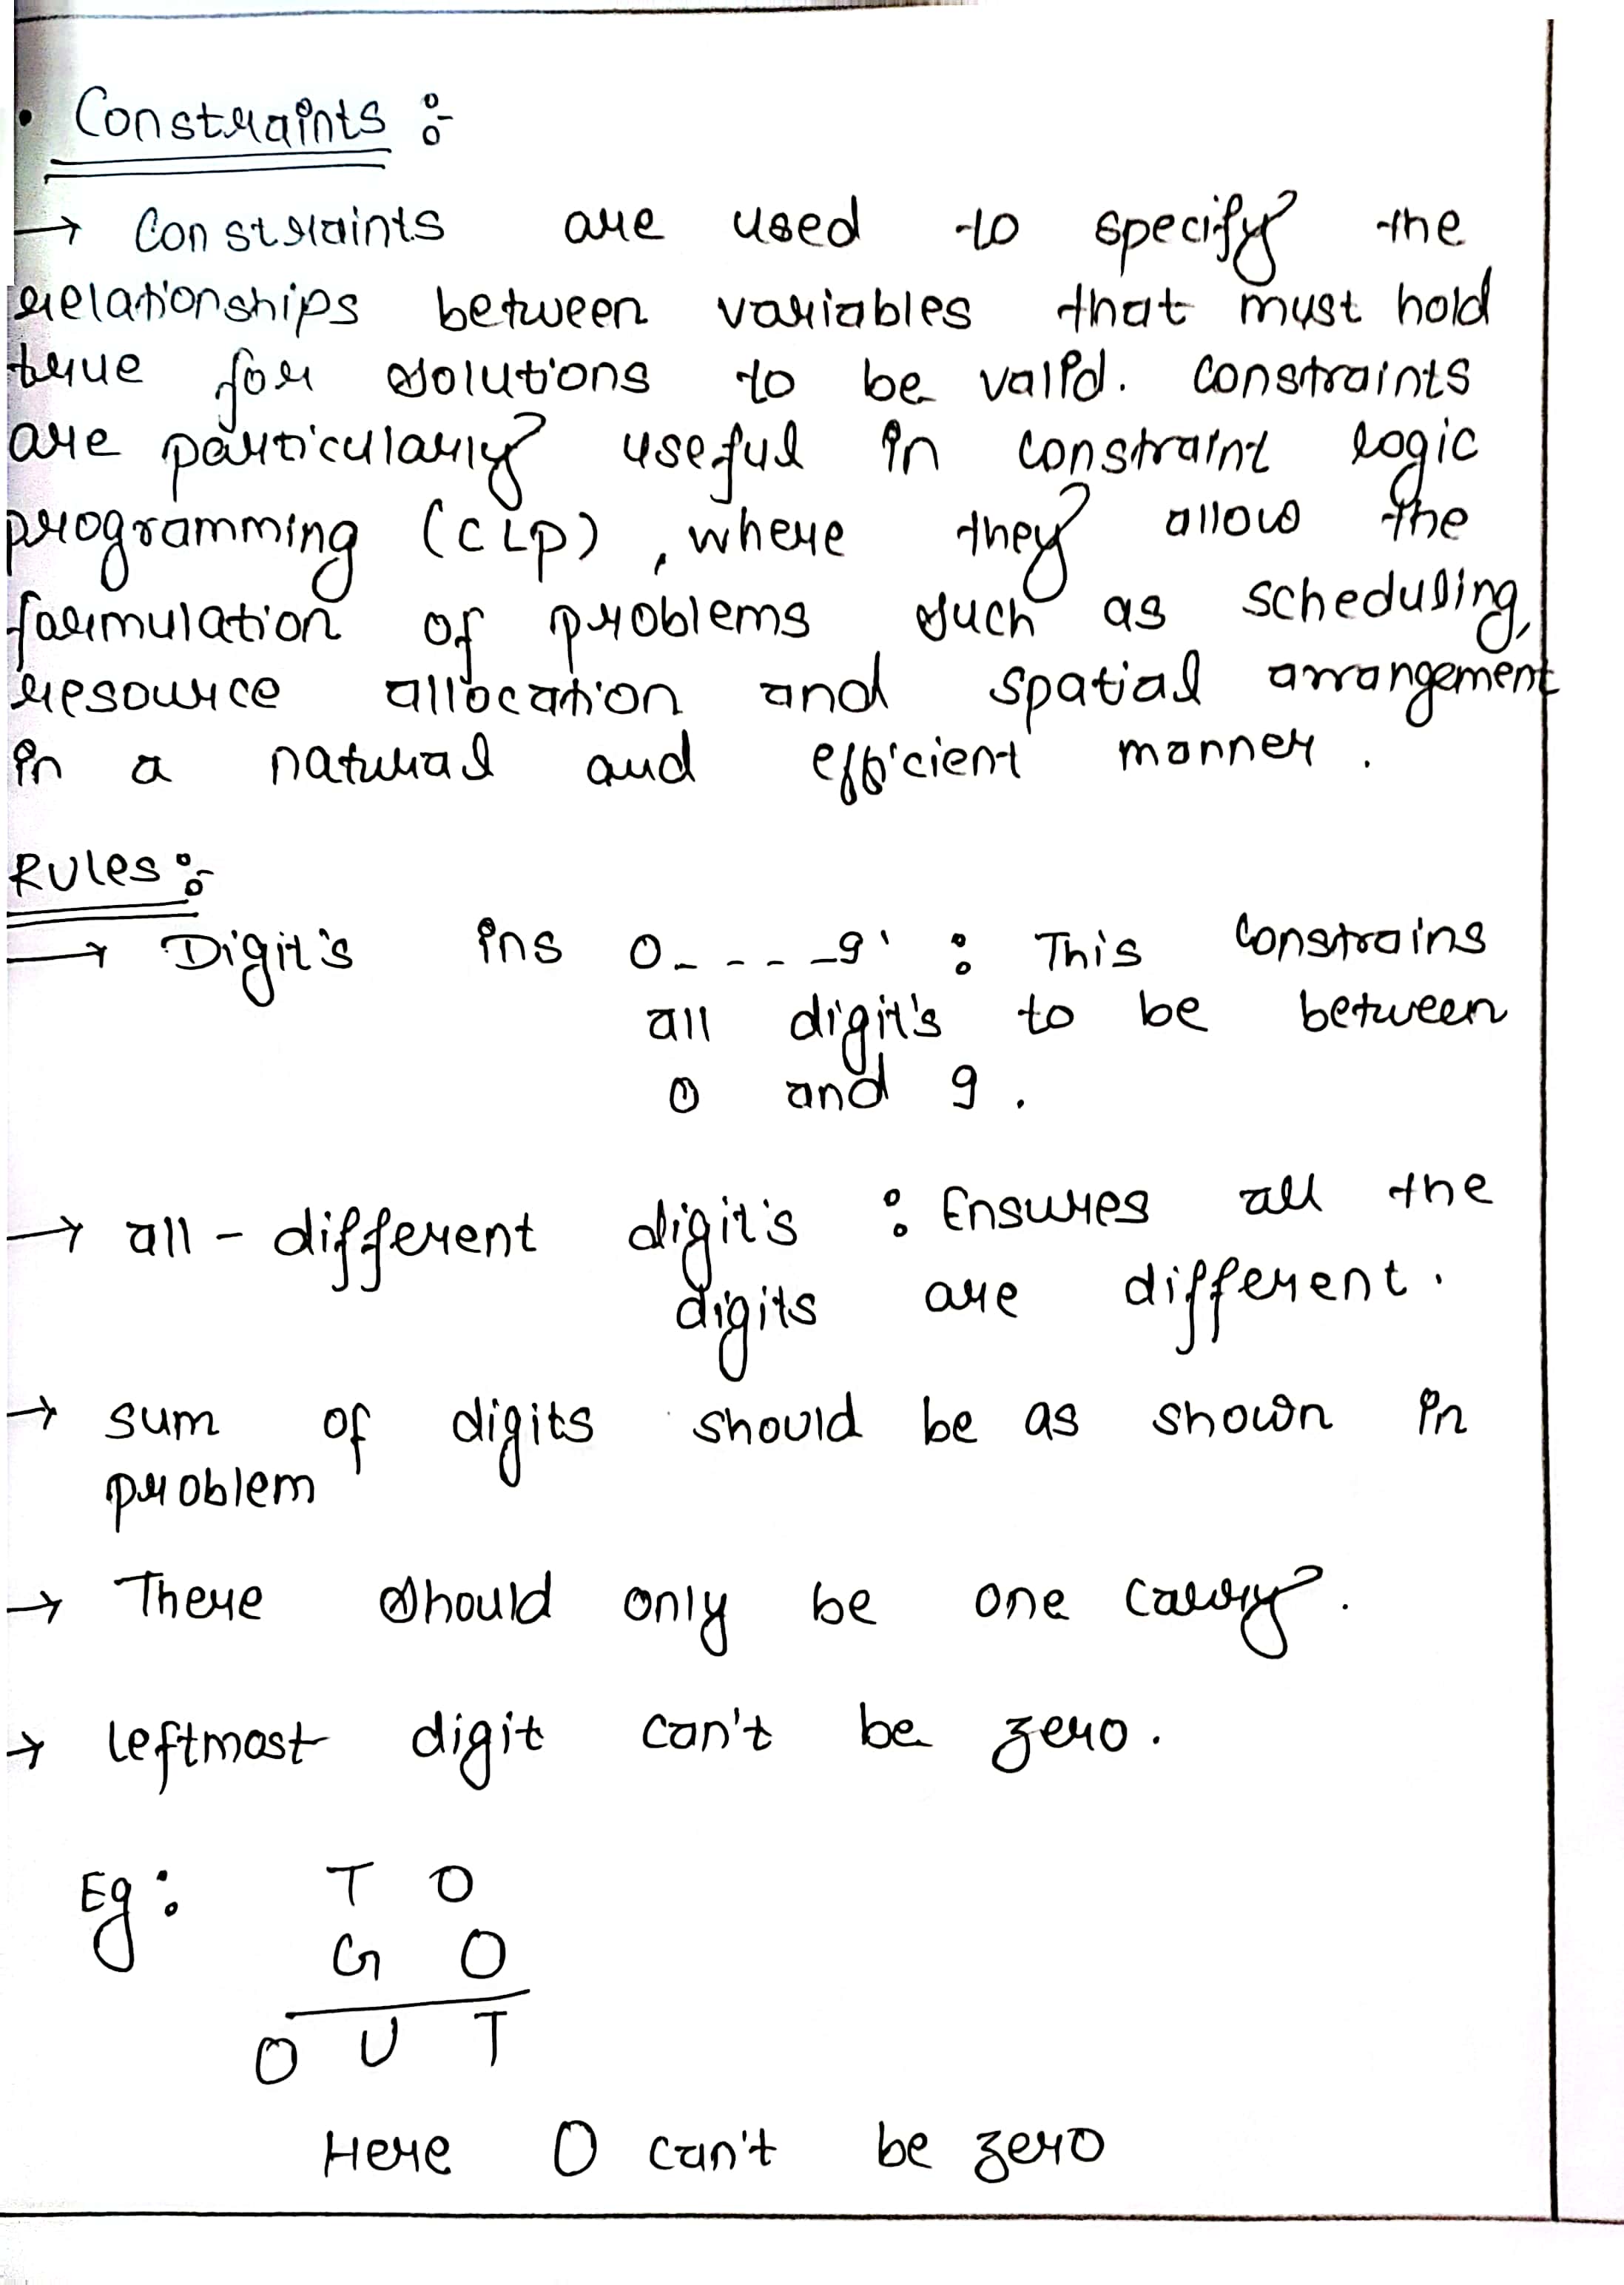 • Constraints :-
→ Constraints are used to specify the
relationships between variables that must hold
true for solutions to be valid. constraints
are particularly useful in constraint logic
programming (CLP), where they allow the
formulation of problems such as scheduling,
resource allocation and spatial arrangement
in a natural and efficient manner.
Rules :-
→ Digit's ins 0_ _ _ _9' : This constrains
all digit's to be between
0 and 9.
→ all - different digit's : Ensures all the
digits are different.
→ sum of digits should be as shown in
problem
→ There should only be one carry.
→ leftmost digit can't be zero.
Eg: T O
G O
O U T
Here O can't be zero